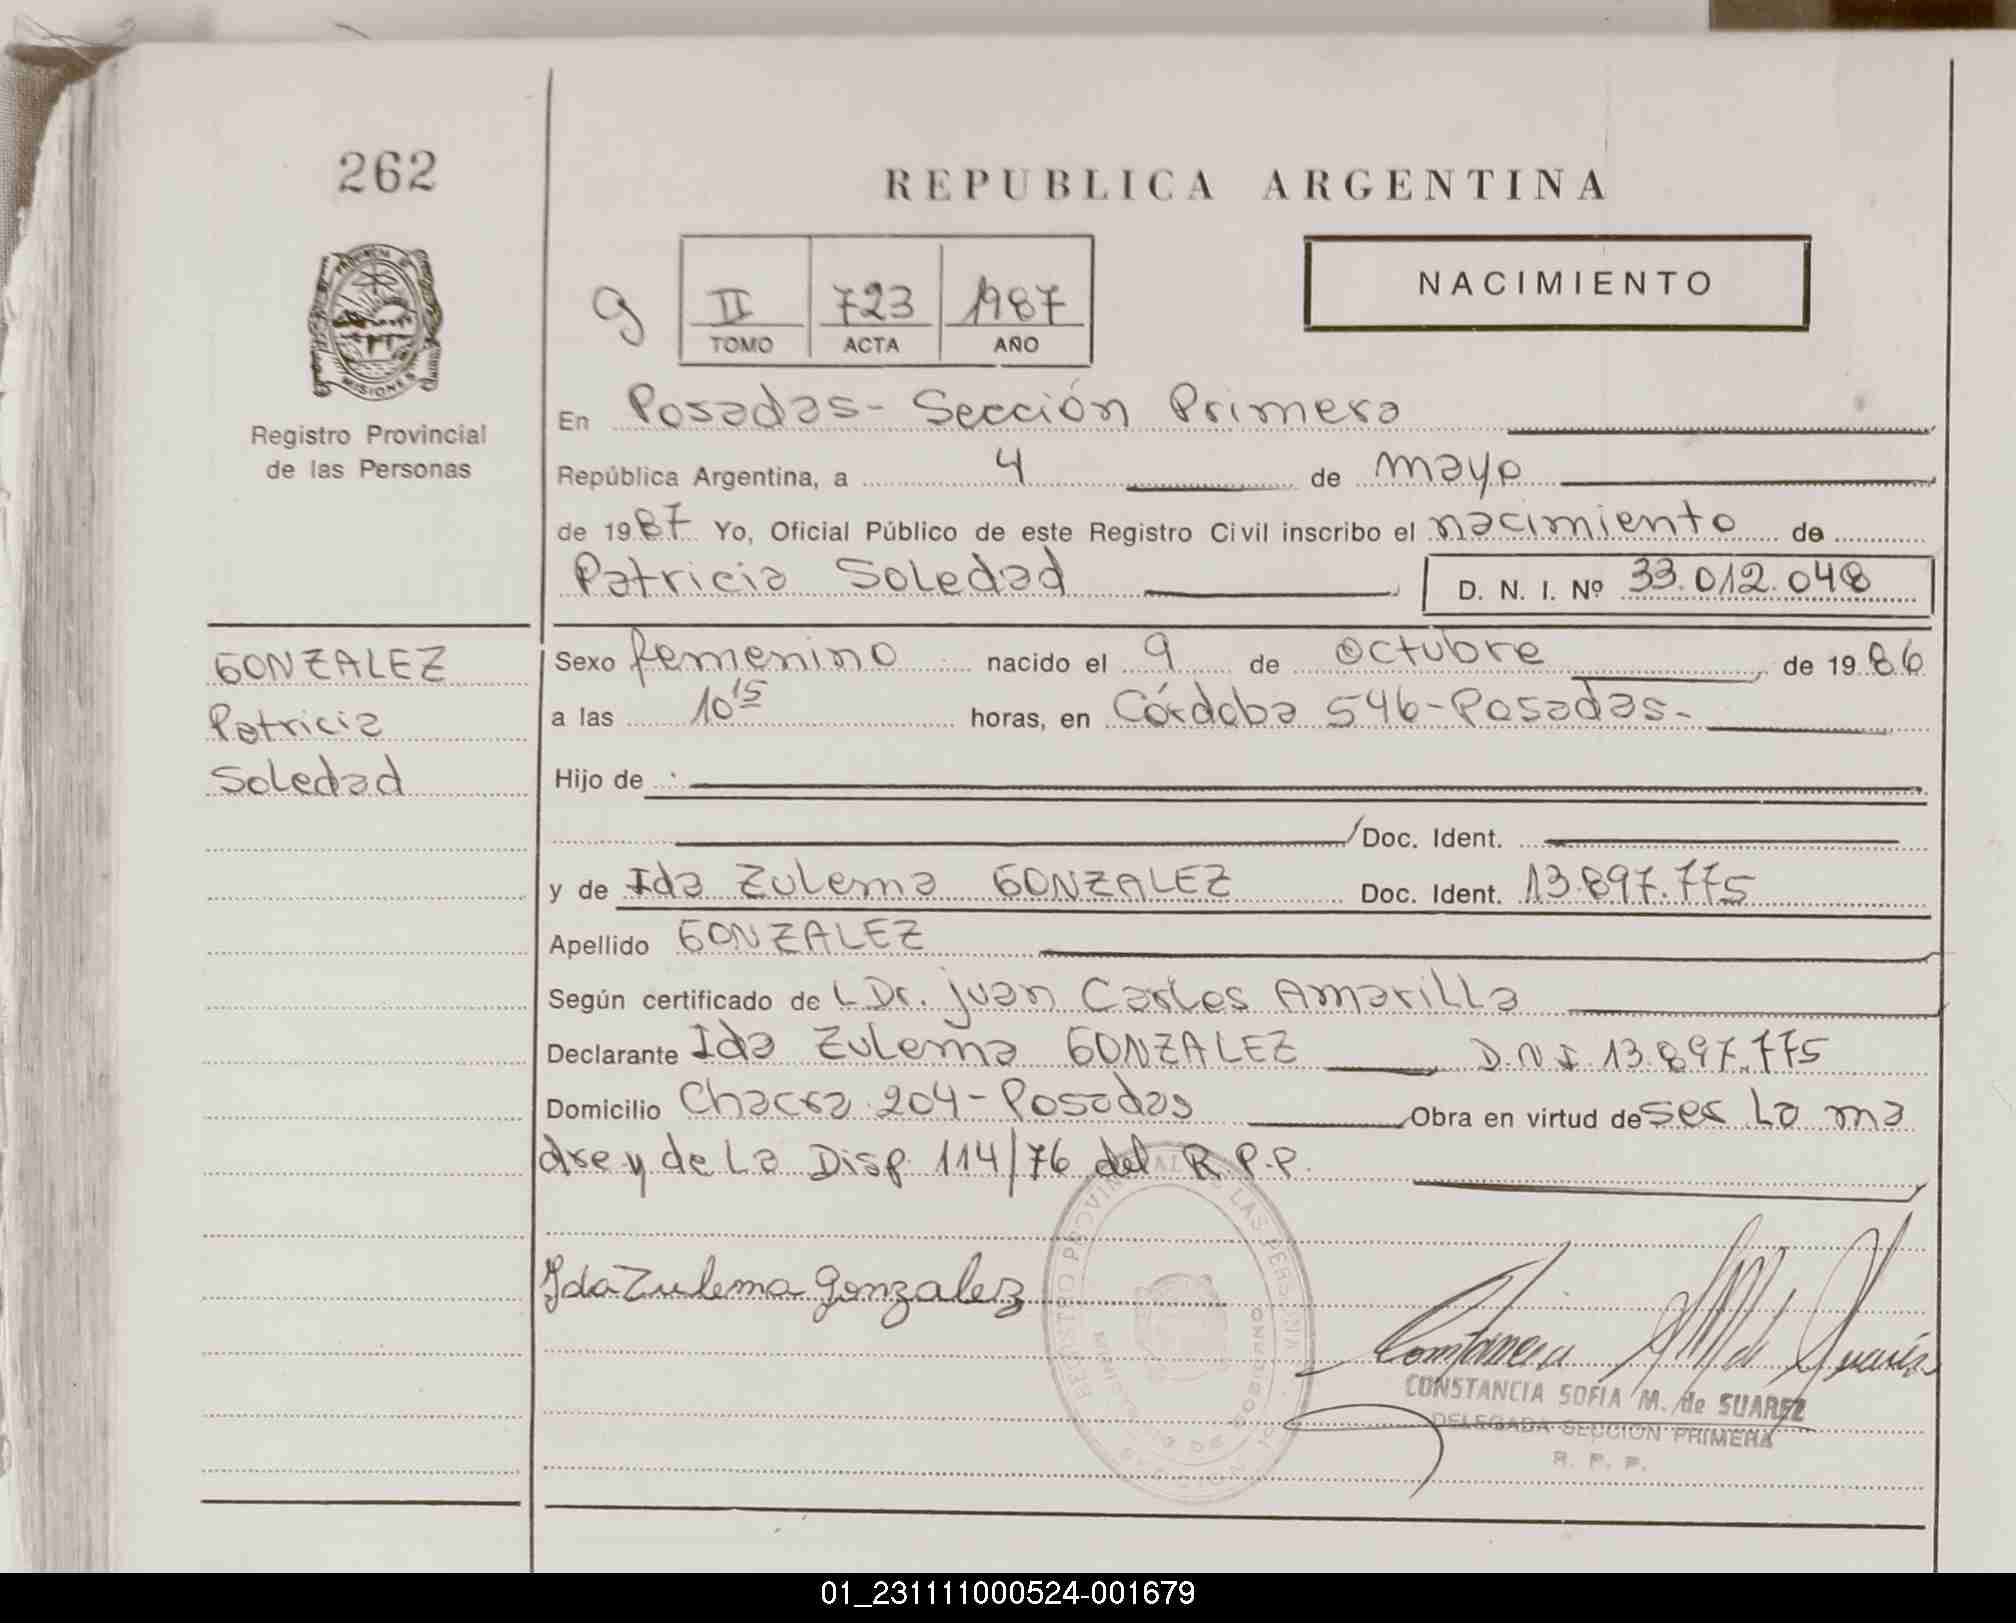 262
REPUBLICA ARGENTINA
NACIMIENTO
g
II 723 1987
TOMO ACTA AÑO
MISIONES
Registro Provincial
de las Personas
En Posadas - Sección Primera
República Argentina, a 4 de mayo
de 1987 Yo, Oficial Público de este Registro Civil inscribo el nacimiento de
Patricia Soledad D. N. I. Nº 33.012.048
GONZALEZ
Patricia
Soledad
Sexo femenino nacido el 9 de Octubre de 1986
a las 10 15 horas, en Córdoba 546 - Posadas -
Hijo de
Doc. Ident.
y de Ida Zulema GONZALEZ Doc. Ident. 13.897.775
Apellido GONZALEZ
Según certificado de L Dr. Juan Carlos Amarilla
Declarante Ida Zulema GONZALEZ D.N.I. 13.897.775
Domicilio Chacra 204 - Posadas Obra en virtud de ser la ma
dre y de La Disp 114/76 del R.P.P.
REGISTRO PROVINCIAL DE LAS PERSONAS
Ida Zulema Gonzalez
Constancia M de Suarez
CONSTANCIA SOFIA M. de SUAREZ
DELEGADA SECCION PRIMERA
R. P. P.
01_231111000524-001679